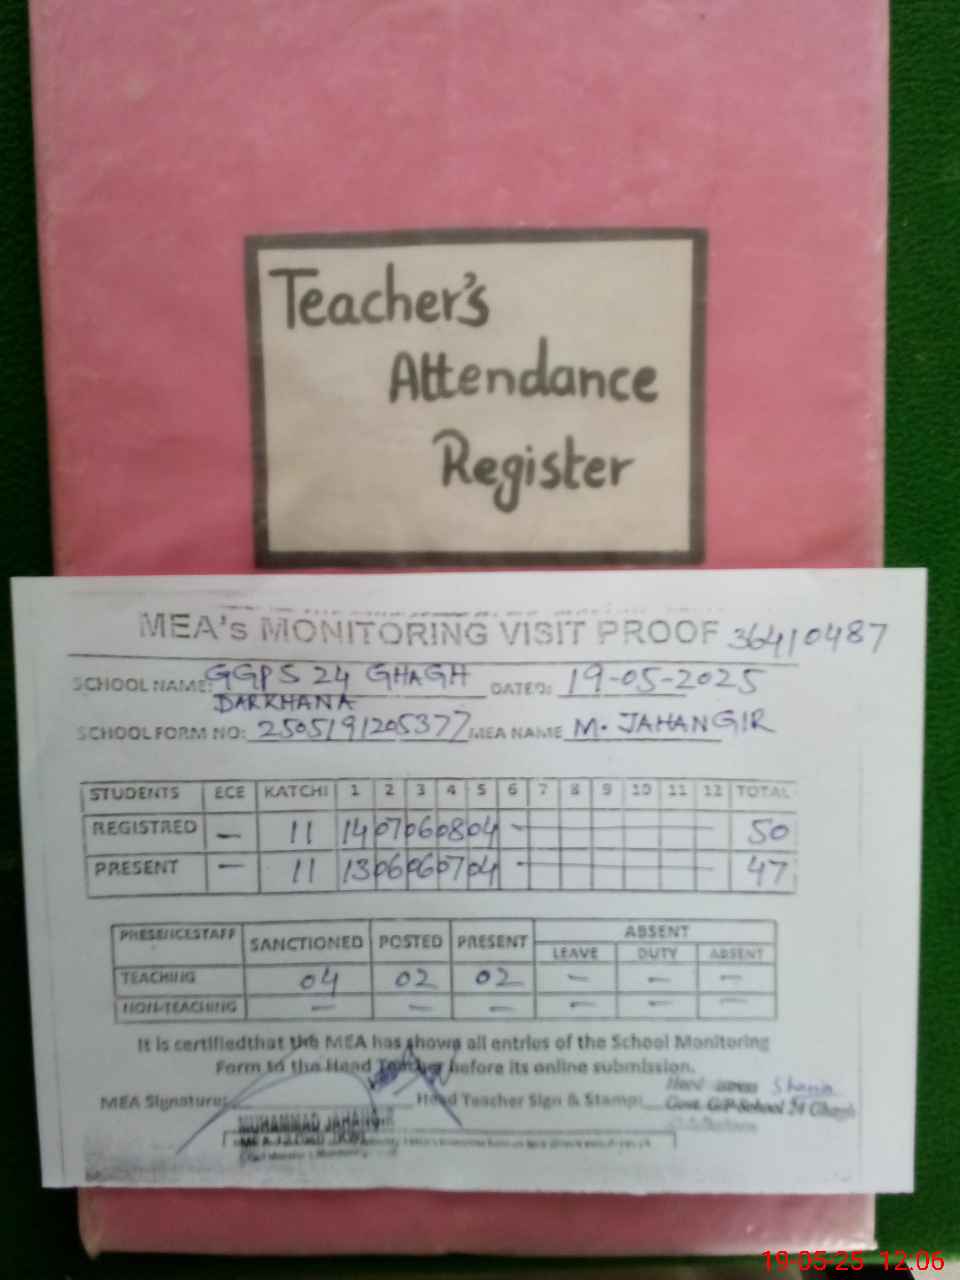 Teacher's
Attendance
Register
MEA's MONITORING VISIT PROOF 36410487
SCHOOL NAME: GGPS 24 GHAGH DATED: 19-05-2025
DARKHANA
SCHOOL FORM NO: 2505191205377 MEA NAME M. JAHANGIR
STUDENTS ECE KATCHI 1 2 3 4 5 6 7 8 9 10 11 12 TOTAL
REGISTRED — 11 14 07 06 08 04 — 50
PRESENT — 11 13 06 06 07 04 — 47
PRESENCESTAFF SANCTIONED POSTED PRESENT ABSENT
LEAVE DUTY ABSENT
TEACHING 04 02 02 — — —
NON-TEACHING — — — — — —
It is certifiedthat the MEA has shown all entries of the School Monitoring
Form to the Head Teacher before its online submission.
MEA Signature: Head Teacher Sign & Stamp:
Govt. G/P School 24 Ghagh
MUHAMMAD JAHANGIR
19-05-25 12:06